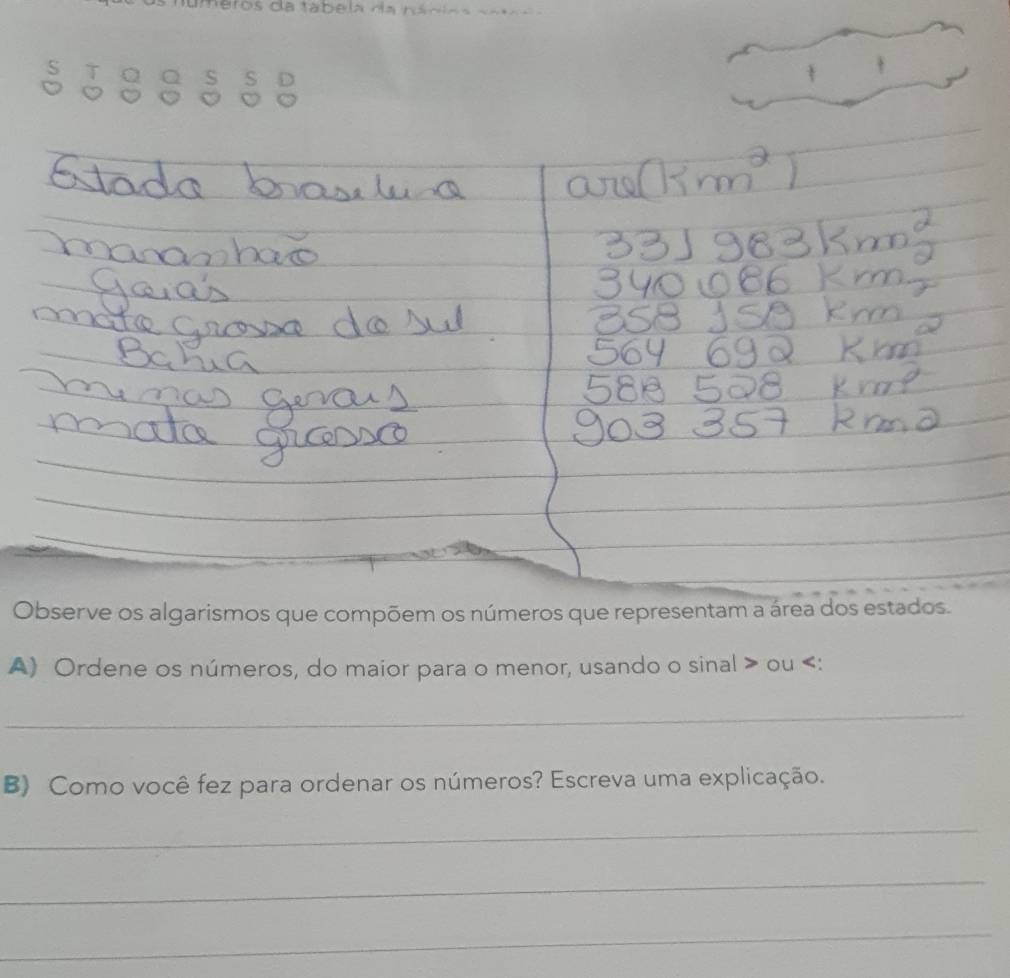 números da tabela da
S T Q Q S S D
Estado brasileiro area (Km²)
maranhaõ 331 983 Km²
Gaiás 340 086 Km²
mato Grosso do sul 358 159 Km²
Bahia 564 692 Km²
minas gerais 588 528 Km²
mato grosso 903 357 Km2
Observe os algarismos que compõem os números que representam a área dos estados.
A) Ordene os números, do maior para o menor, usando o sinal > ou <:
B) Como você fez para ordenar os números? Escreva uma explicação.